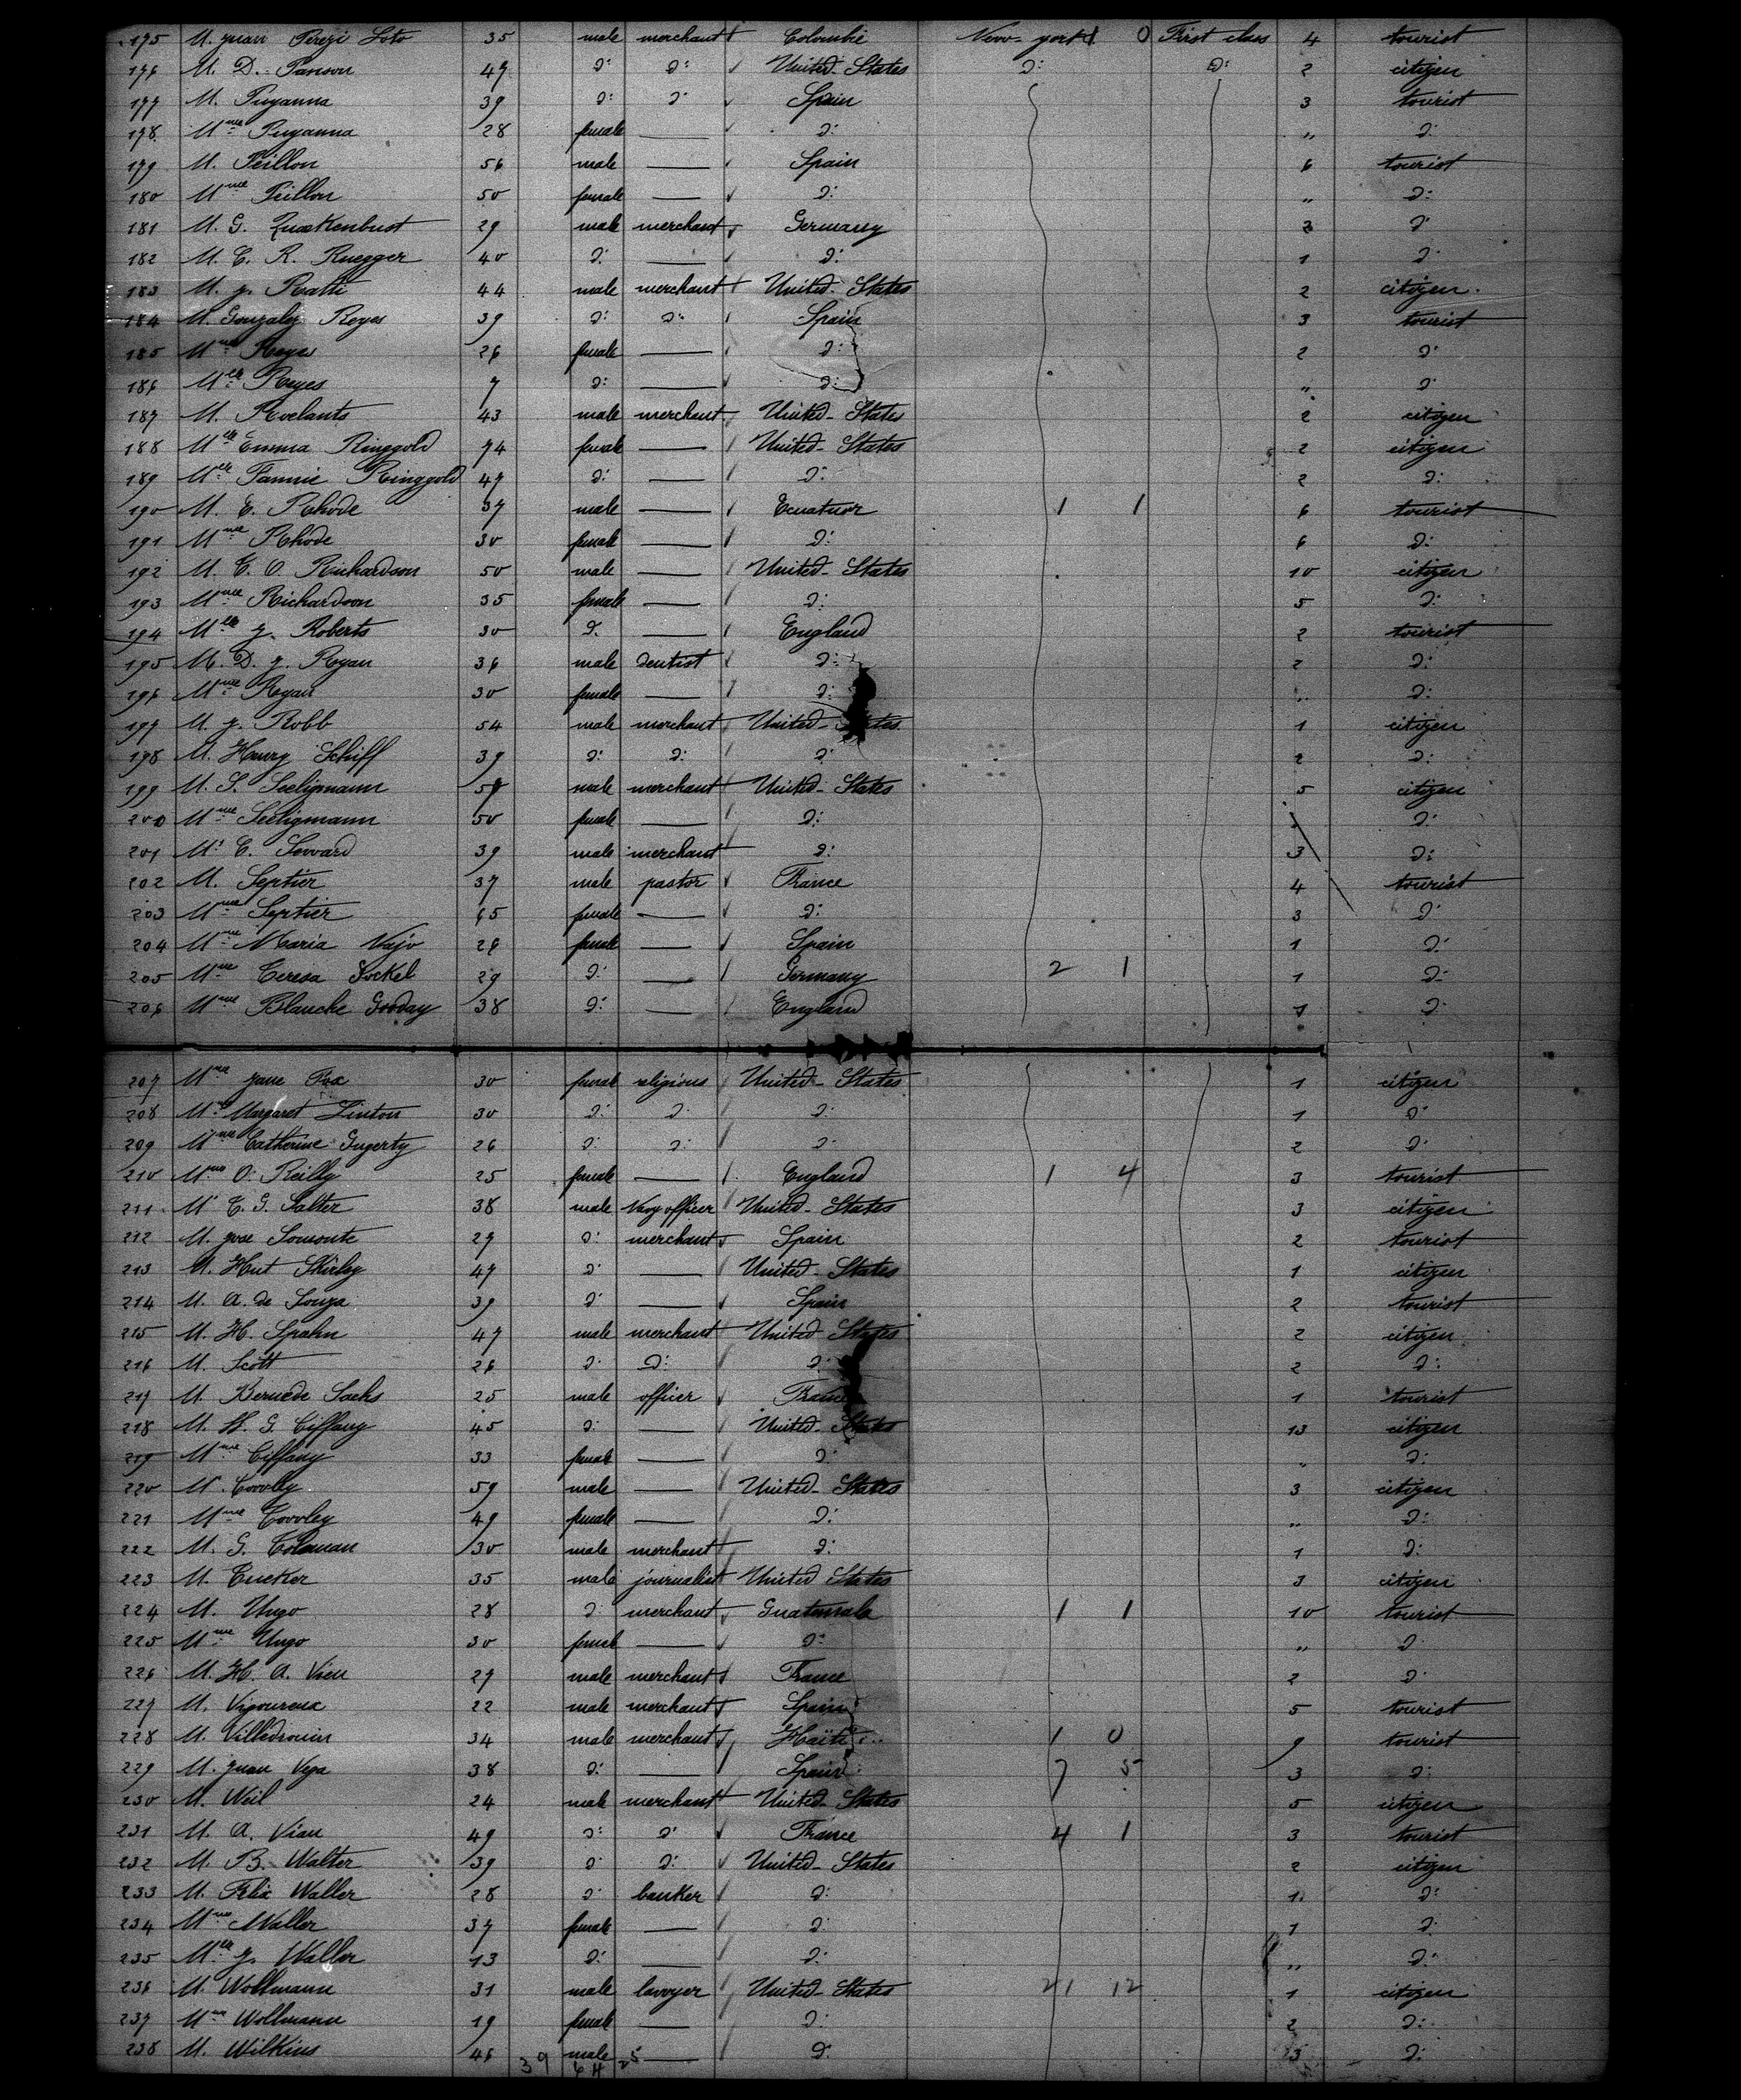 175 M. Juan Perezi Soto 35 male merchant Colombie New-york 1 0 First class 4 tourist
176 M. D. Panson 47 d: d: United-States d: d: 2 citizen
177 M. Puyanna 39 d: d: Spain 3 tourist
178 Mme Puyanna 28 female — d: " d:
179 M. Peillon 56 male — Spain 6 tourist
180 Mme Peillon 50 female — d: " d:
181 M. G. Quakenbust 29 male merchant Germany 3 d:
182 M. C. R. Ruegger 40 d: — d: 1 d:
183 M. J. Ratti 44 male merchant United-States 2 citizen
184 M. Gonzalez Reyes 39 d: d: Spain 3 tourist
185 Mme Reyes 26 female — d: 2 d:
186 Melle Reyes 7 d: — d: " d:
187 M. Roelants 43 male merchant United-States 2 citizen
188 Melle Emma Ringgold 74 female — United-States 2 citizen
189 Melle Fannie Ringgold 47 d: — d: 2 d:
190 M. E. Rhode 37 male — Ecuatuor 1 1 6 tourist
191 Mme Rhode 30 female — d: 6 d:
192 M. C. O. Richardson 50 male — United-States 10 citizen
193 Mme Richardson 35 female — d: 5 d:
194 Melle J. Roberts 30 d. — England 2 tourist
195 M. D. J. Ryan 36 male dentist d: 2 d:
196 Mme Ryan 30 female — d: " d:
197 M. J. Robb 54 male merchant United-States 1 citizen
198 M. Henry Schiff 39 d: d: d: 2 d:
199 M. S. Seeligmann 59 male merchant United-States 5 citizen
200 Mme Seeligmann 50 female — d: d:
201 Mr C. Sevvard 39 male merchant d: 3 d:
202 M. Septier 37 male pastor France 4 tourist
203 Mme Septier 65 female — d: 3 d:
204 Mme Maria Vajo 26 female — Spain 1 d:
205 Mme Ceresa Sockel 29 d: — Germany 2 1 1 d:
206 Mme Blanche Gooday 38 d: — England 1 d:
207 Mme Jane Fox 30 female religious United-States 1 citizen
208 Mme Margaret Linton 30 d: d: d: 1 d:
209 Mme Catherine Gugerty 26 d: d: d: 2 d:
210 Mme O'Reilly 25 female — England 1 4 3 tourist
211 Mr C. G. Salter 38 male Navy officer United-States 3 citizen
212 M. Jose Somonte 27 d: merchant Spain 2 tourist
213 M. Hut Shirley 47 d: — United-States 1 citizen
214 M. A. de Souza 39 d: — Spain 2 tourist
215 M. H. Spahn 47 male merchant United States 2 citizen
216 M. Scott 26 d: d: d: 2 d:
217 M. Bernede Sachs 25 male officer France 1 tourist
218 M. H. G. Ciffany 45 d: — United-States 13 citizen
219 Mme Ciffany 33 female — d: " d:
220 M. Coovley 59 male — United-States 3 citizen
221 Mme Coovley 49 female — d: " d:
222 M. G. Colaman 30 male merchant d: 1 d:
223 M. Cucker 35 male journalist United States 3 citizen
224 M. Ungo 28 d: merchant Guatemala 1 1 10 tourist
225 Mme Ungo 30 female — d: " d
226 M. H. A. Vieu 27 male merchant France 2 d:
227 M. Vigoureux 22 male merchant Spain 5 tourist
228 M. Villedrouin 34 male merchant Haïti 1 0 9 tourist
229 M. Juan Vega 38 d: — Spain 7 5 3 d:
230 M. Weil 24 male merchant United-States 5 citizen
231 M. A. Viau 49 d: d: France 4 1 3 tourist
232 M. B. Walter 39 d: d: United-States 2 citizen
233 M. Felix Waller 28 d: banker d: 1 d:
234 Mme Waller 37 female — d: 1 d:
235 Melle J. Waller 13 d: — d: " d:
236 M. Wollmann 31 male lavvyer United-States 21 12 1 citizen
237 Mme Wollmann 19 female — d: 2 d:
238 M. Wilkins 46 male — d: 3 d:
39 64 25